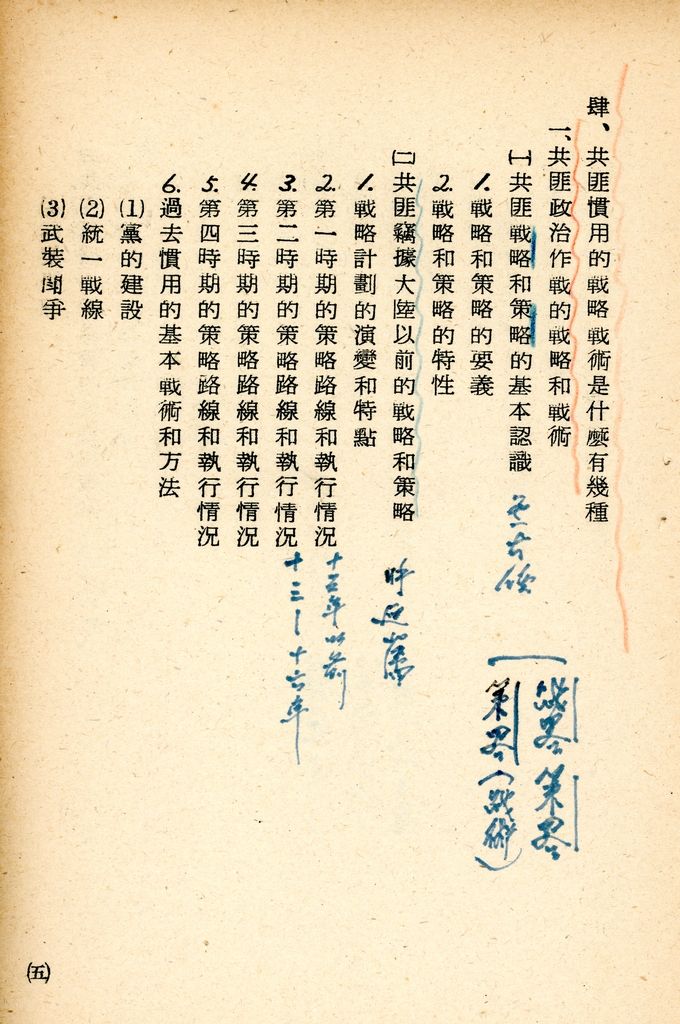 肆、共匪慣用的戰略戰術是什麼有幾種
一、共匪政治作戰的戰略和戰術
㈠共匪戰略和策略的基本認識
1.戰略和策略的要義
2.戰略和策略的特性
㈡共匪竊據大陸以前的戰略和策略
1.戰略計劃的演變和特點
2.第一時期的策略路線和執行情況
3.第二時期的策略路線和執行情況
4.第三時期的策略路線和執行情況
5.第四時期的策略路線和執行情況
6.過去慣用的基本戰術和方法
⑴黨的建設
⑵統一戰線
⑶武裝鬭爭
战畧 策畧
策畧(战術)
十三年以前
十三—十六年
㈤